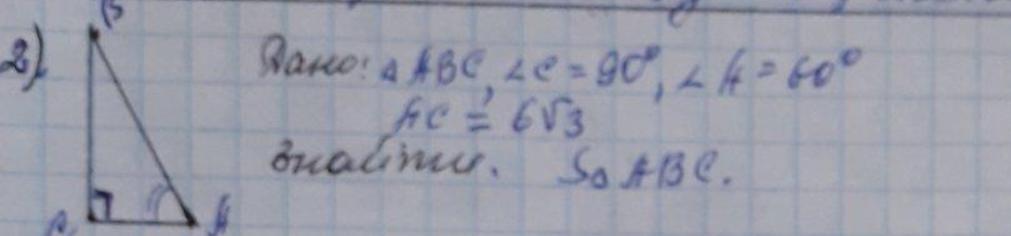 B
2)
Дано: △ABC, ∠C = 90°, ∠A = 60°
AC = 6√3
Знайти. S△ABC.
C A